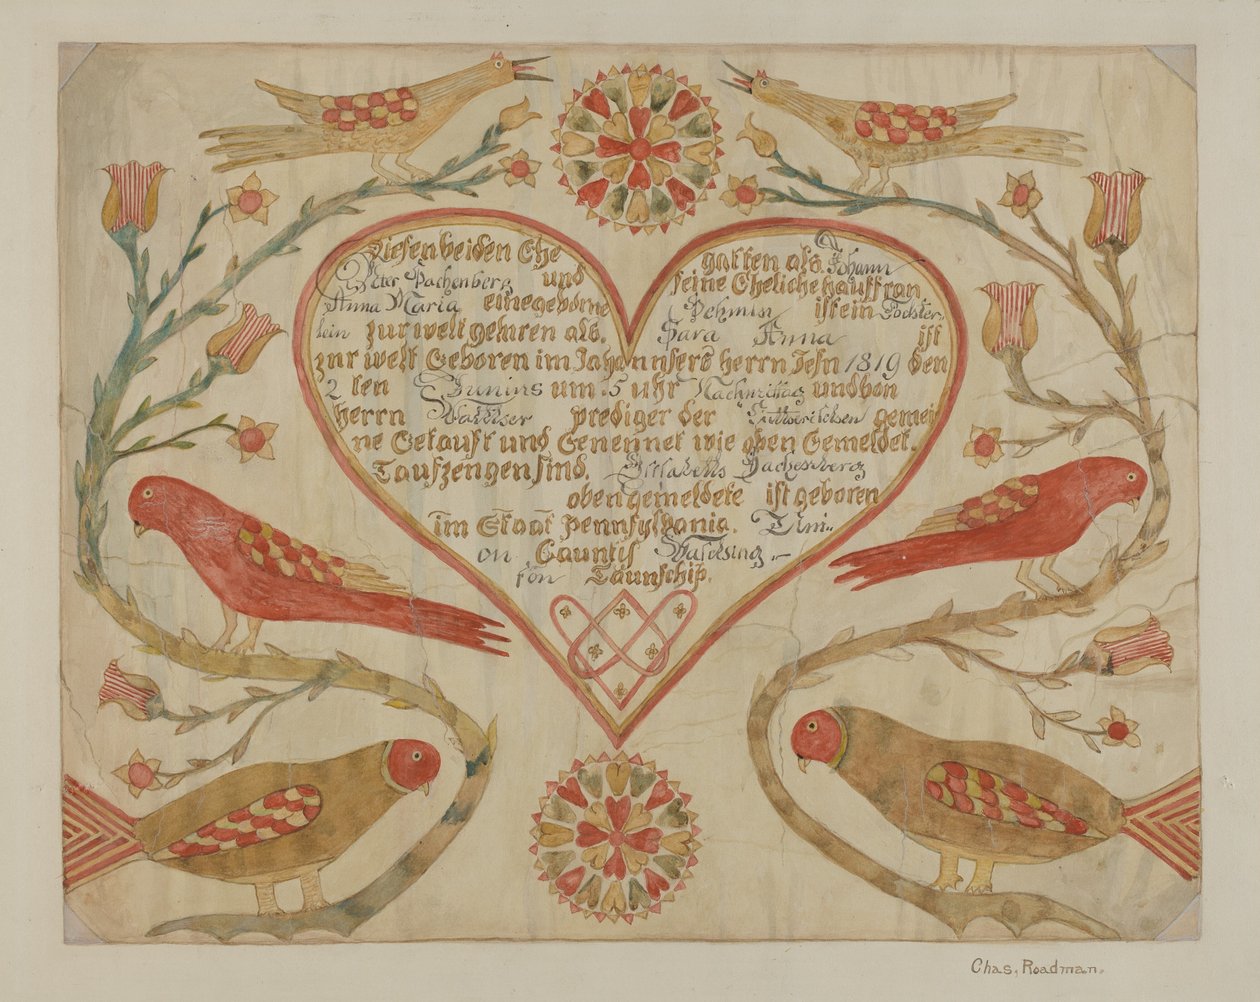 Diesen beiden Ehe gatten als Johann
Peter Pachenberg und seine Eheliche hauffrau
Anna Maria eine geborne Pehmin ist ein Tochter-
lein zur welt gehren als. Sara Anna ist
zur welt Geboren im Jahr unsers herrn Jesu 1819 den
2 ten Junius um 5 uhr Nachmittag und von
herrn prediger der Lutterischen gemei
ne Getauft und Genennet wie oben Gemeldet.
Taufzeugen sind. Elisabeth Pachenberg
oben gemeldete ist geboren
im Staat Pennsylvania. Uni-
on Caunty
fon Taunschip.
Chas. Roadman.